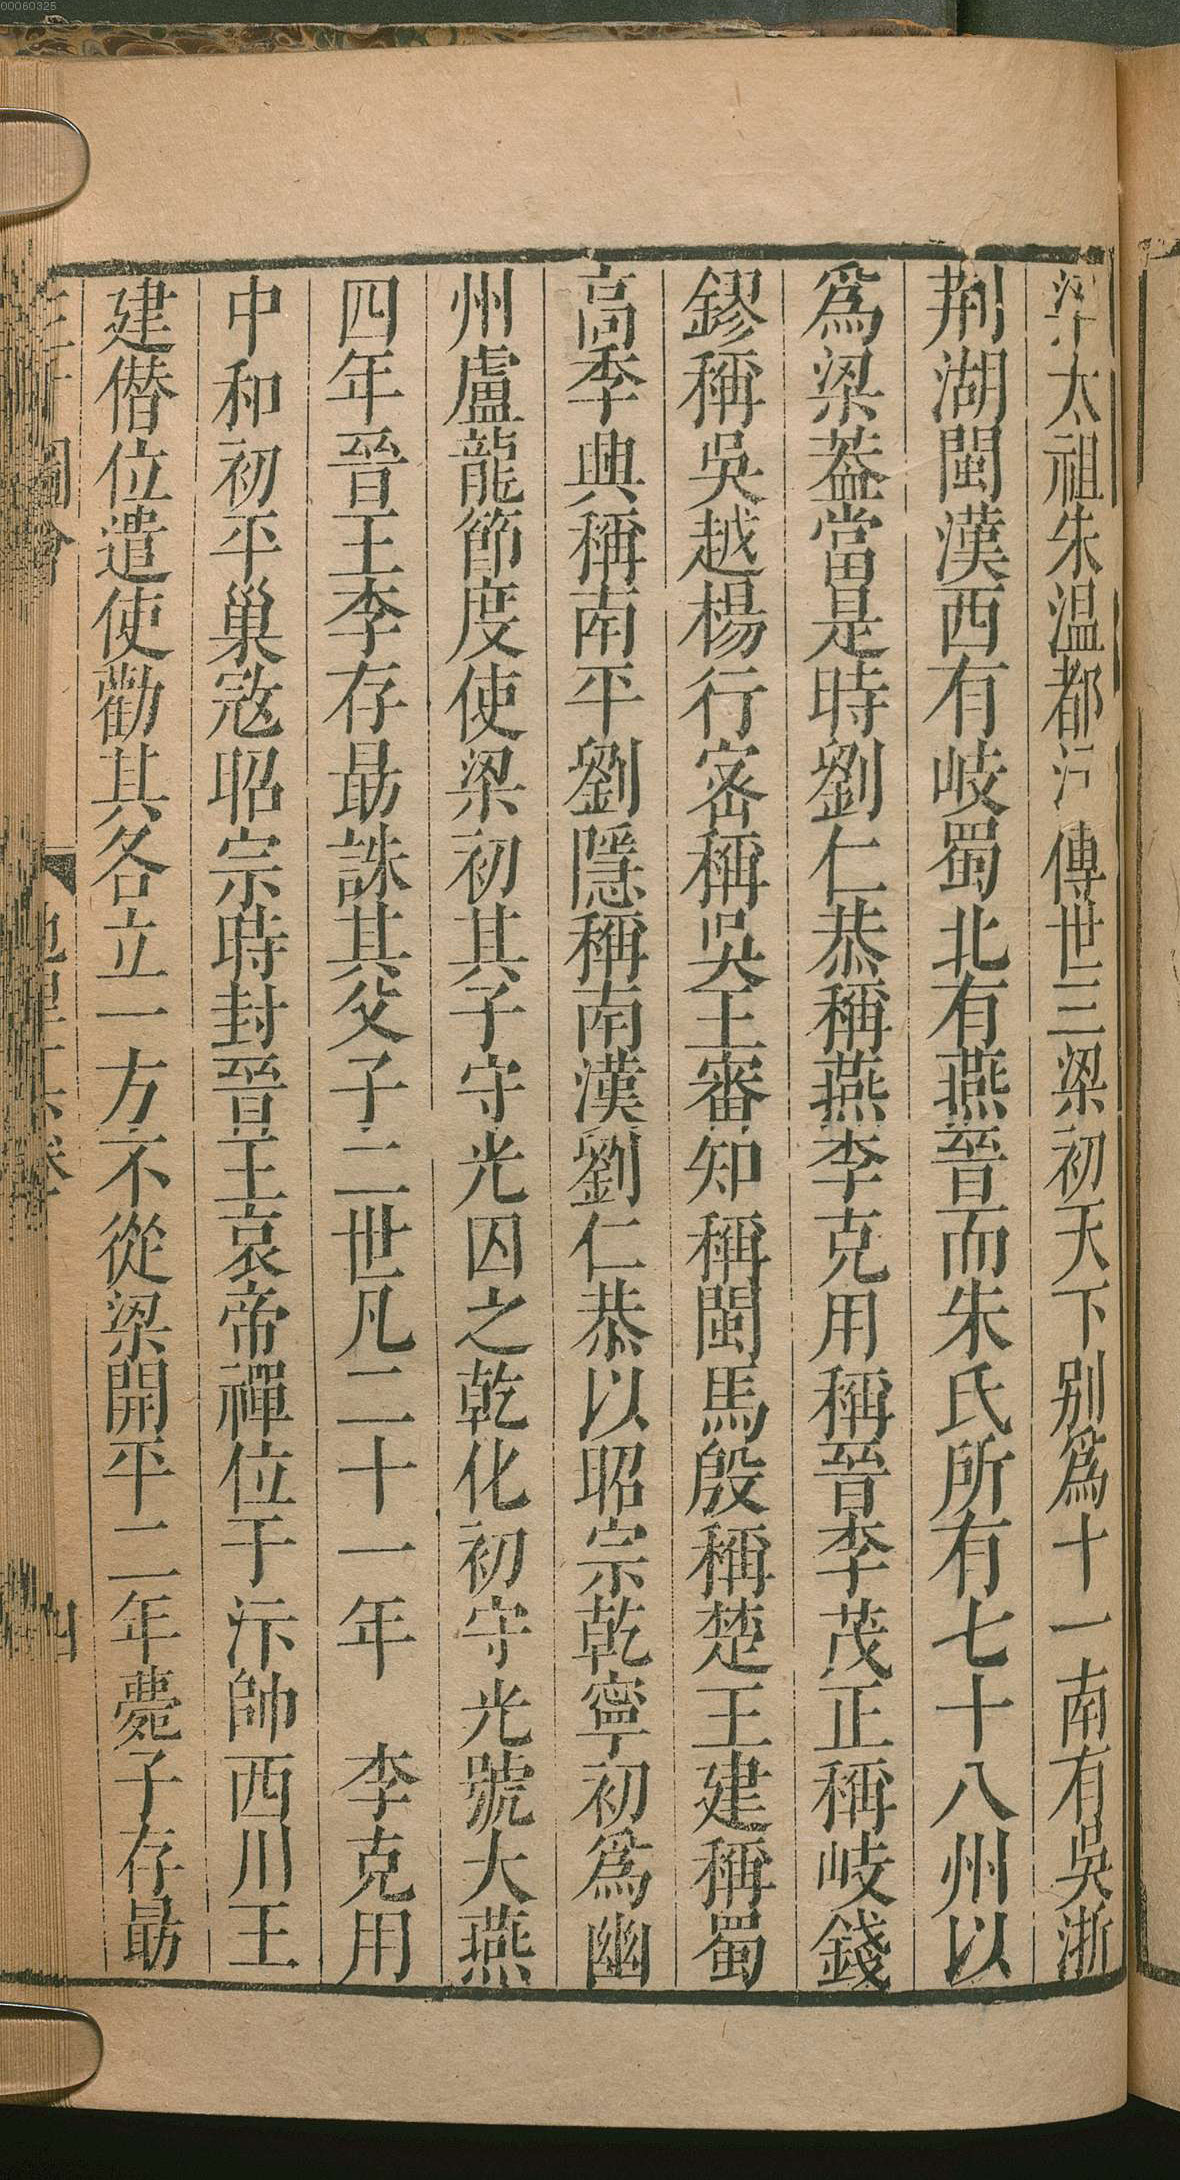 梁太祖朱温都汴傳世三梁初天下别爲十一南有吳浙
荆湖閩漢西有岐蜀北有燕晉而朱氏所有七十八州以
爲梁葢當是時劉仁恭稱燕李克用稱晉李茂正稱岐錢
鏐稱吳越楊行宻稱吳王審知稱閩馬殷稱楚王建稱蜀
高季興稱南平劉隱稱南漢劉仁恭以昭宗乾寧初爲幽
州盧龍節度使梁初其子守光囚之乾化初守光號大燕
四年晉王李存勗誅其父子二世凡二十一年 李克用
中和初平巢宼昭宗時封晉王哀帝禪位于汴帥西川王
建僭位遣使勸其各立一方不從梁開平二年薨子存勗
00060325